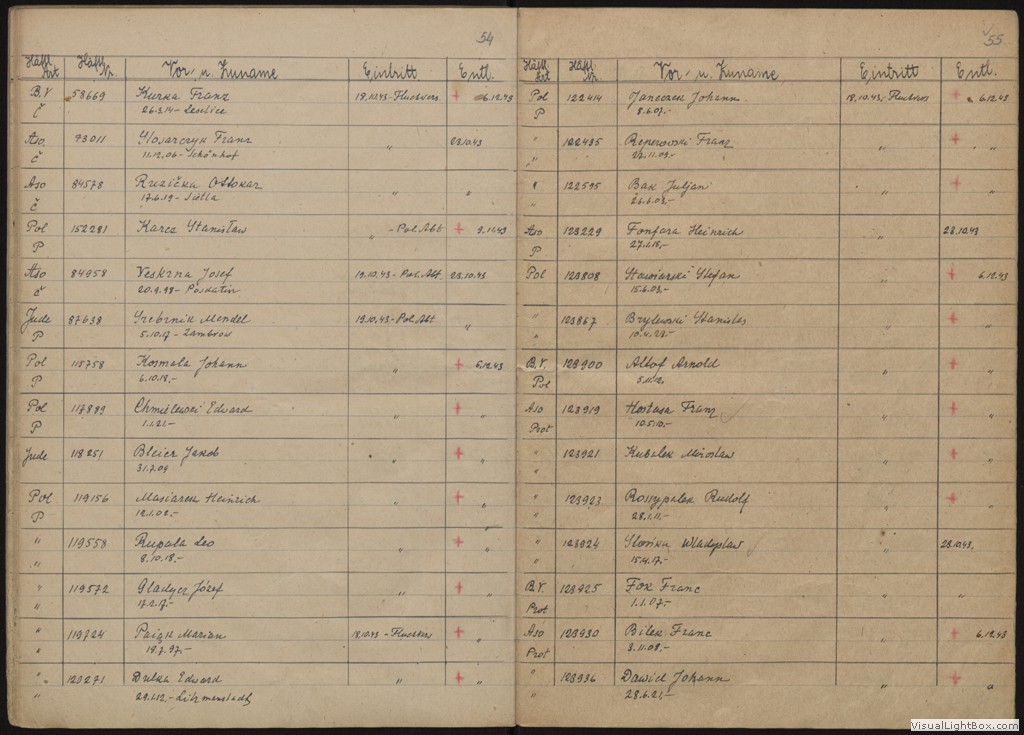 54
Häftl. Art Häftl. Nr. Vor- u. Zuname Eintritt Entl.
B.V 58669 Kurka Franz 19.10.43-Fluchvers. + 6.12.43
Č 26.3.14-
Aso 73011 Slosarczyk Franz " 23.10.43
Č 11.12.06- Schönhof
Aso 84578 Ruzička Ottokar " "
Č 17.6.19-
Pol 152281 Karcz Stanisław " -Pol.Abt + 9.11.43
P
Aso 84958 Veskrna Josef 19.10.43-Pol.Abt. 23.10.43
Č 20.9.99-
Jude 87638 Srebrnik Mendel 19.10.43-Pol.Abt
P 5.10.17- Zambrow
Pol 115758 Kosmala Johann " + 6.12.43
P 6.10.18.-
Pol 117889 Chmielewski Edward " + "
P 1.1.21.-
Jude 118251 Bleier Jakob " + "
31.7.09
Pol 119156 Masiarek Heinrich " + "
P 12.1.02.-
" 119558 Rupala Leo " + "
" 8.10.18.-
" 119572 Gladycz Józef " + "
" 17.2.17.-
" 119724 Pająk Marian 18.10.43-Fluchvers + "
" 19.7.97.-
" 120271 Dulka Edward " + "
" 29.1.12.- Litzmannstadt
55
Häftl. Art Häftl. Nr. Vor- u. Zuname Eintritt Entl.
Pol 122414 Janeczek Johann 18.10.43-Fluchvers + 6.12.43
P 8.6.07.-
" 122435 Reperowski Franz " + "
" 22.11.09.-
" 122595 Bak Juljan " + "
" 26.6.03.-
Aso 123229 Fonfara Heinrich " 23.10.43
P 27.1.15.-
Pol 123808 Stawiarski Stefan " + 6.12.43
15.6.03.-
" 123867 Brylewski Stanislas " + "
" 10.4.23.-
B.V. 123900 Altof Arnold " + "
Pol 5.11.12.
Aso 123919 Hostasa Franz " + "
Prot 10.5.10.-
" 123921 Kubalek Miroslaw " + "
"
" 123923 Rossypalek Rudolf " + "
" 28.1.11.-
" 123924 Wladyslaw " 23.10.43.
" 15.4.17.-
B.V. 123925 Fox Franc " "
Prot 1.1.07.-
Aso 123930 Bilek Franc " + 6.12.43
Prot 3.11.08.-
" 123936 Dawid Johann " + "
" 28.6.21.-
VisualLightBox.com